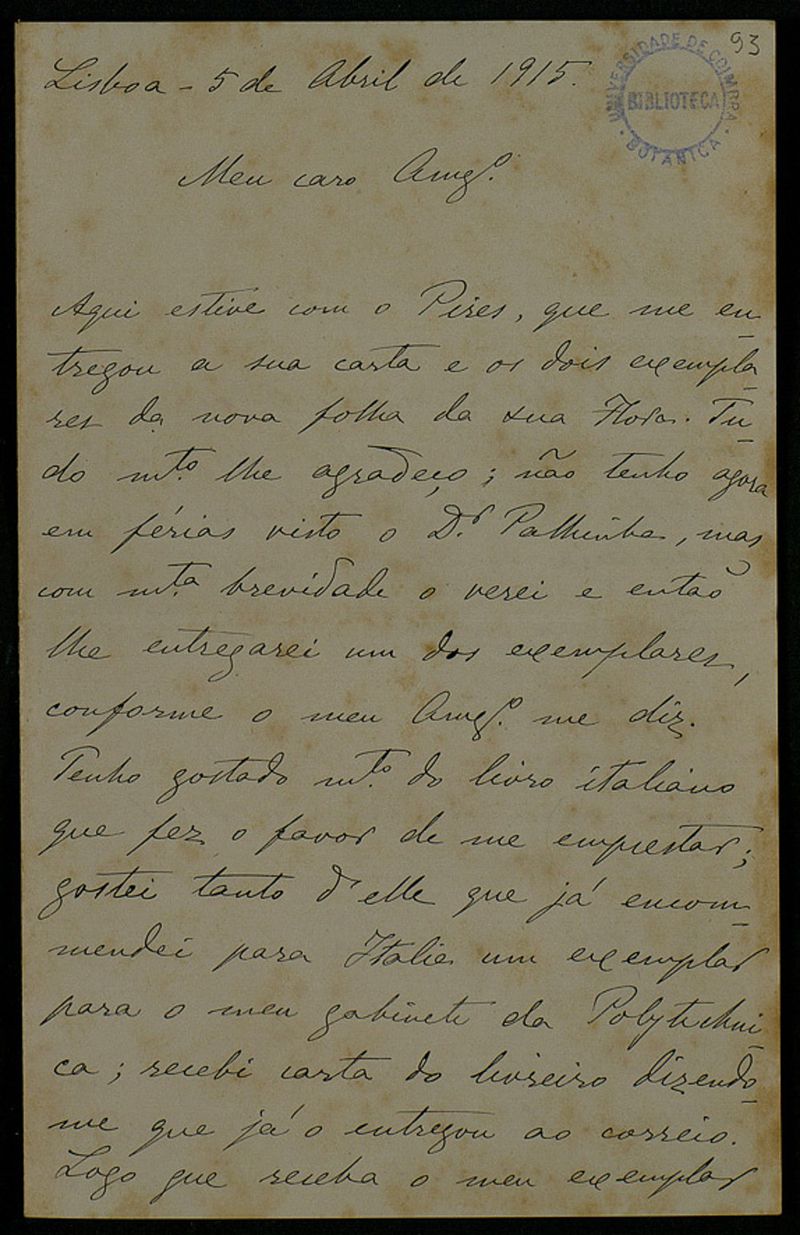 93
UNIVERSIDADE DE COIMBRA
BIBLIOTECA
BOTANICA
Lisboa - 5 de Abril de 1915.
Meu caro Amg.º
Aqui estive com o Pires, que me en-
tregou a sua carta e os dois exempla-
res da nova folha da sua Flora. Tu-
do mt.º lhe agradeço; não tenho agora
em férias visto o D.r Palhinha, mas
com mt.a brevidade o verei e então
lhe entregarei um dos exemplares,
conforme o meu Amg.º me diz.
Tenho gostado mt.º do livro italiano
que fez o favor de me emprestar;
gostei tanto d'elle que já encom-
mendei para Italia um exemplar
para o meu gabinete da Polytechni-
ca; recebi carta do livreiro dizendo-
me que já o entregou ao correio.
Logo que receba o meu exemplar